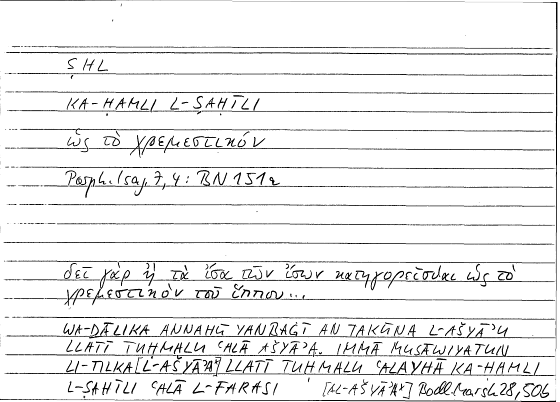 ṢHL
KA-ḤAMLI L-ṢAHĪLI
ὡς τὸ χρεμεστικόν
Porph. Isag. 7,4: BN 151a
δεῖ γὰρ ἢ τὰ ἴσα τῶν ἴσων κατηγορεῖσθαι ὡς τὸ
χρεμεστικὸν τοῦ ἵππου...
WA-ḎĀLIKA ANNAHŪ YANBAĠĪ AN TAKŪNA L-AŠYĀʾU
LLATĪ TUḤMALU ʿALĀ AŠYĀʾA. IMMĀ MUSĀWIYATUN
LI-TILKA [L-AŠYĀʾI] LLATĪ TUḤMALU ʿALAYHĀ KA-ḤAMLI
L-ṢAHĪLI ʿALĀ L-FARASI [AL-AŠYĀʾI] Bodl. Marsh. 28, 50b